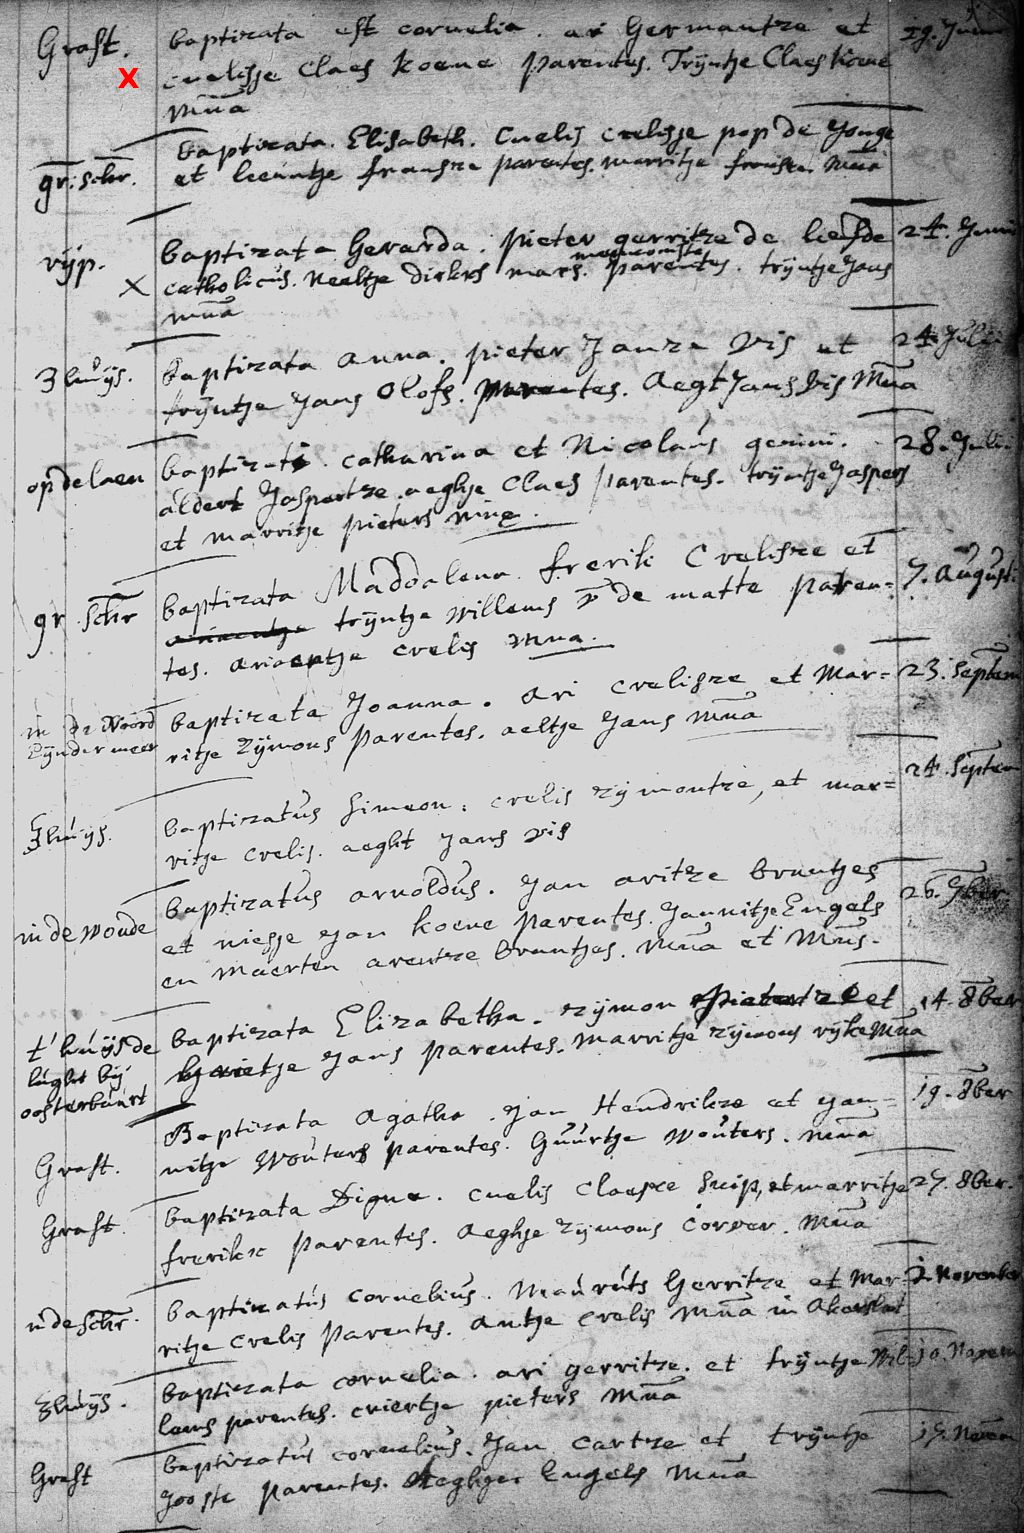 Graft. baptizata est cornelia. ari Germantze et 19. Junii
X cnelisje Claes Koene parentes. Trÿntje Claes Koene
mna
baptizata. Elisabeth. Cnelis crelisje pop de Jonge
gr: schr. et leuntje fransze parentes. marritje fransen mna
rÿp. baptizata Gerarda. pieter gerritze de liefde 24. Junii
X catholicus. neeltje dirkss mars. mennonista parentes. trÿntje Jans
mna
Shuÿs. baptizata anna. pieter Janze Vis et 24. Julii
trÿntje Jans Olofs. parentes. Aegt Jans Vis mna
op de laen baptizati. catharina et Nicolaus gemini. 28. Julii
aldert Jaspertze. aeghje Claes parentes. trÿntje Jaspers
et marritje pieters mnæ.
gr. schr baptizata Maddalena. frerik Crelisze et 7. Augusti
trÿntje willems v de matte paren=
tes. ariaentje crelis mna.
in de Noord baptizata Joanna. ari crelisze et Mar= 23. Septem
Eÿndermeer ritje zÿmons parentes. aeltje Jans mna
Shuÿs. baptizatus Simeon. crelis zÿmontze, et mar= 24. Septem
ritje crelis. aeght Jans vis
in de woude baptizatus arnoldus. Jan aritze bruntjes 26. 7ber
et niesje Jan koene parentes. Jannitje Engels
en maerten arentze bruntjes. mna et mns.
t' huÿs de baptizata Elizabetha. zÿmon pietertze et 14. 8ber
lught bÿ grietje Jans parentes. marritje zÿmons rÿke mna
oosterbuurt
Baptizata Agatha. Jan Hendrikze et Jan= 19. 8ber
Graft. nitje Wouters parentes. Guurtje Wouters. mna
Graft. baptizata Digna. cnelis claesze Snip, et marritje 27. 8ber.
frerikx parentes. Aeghje zÿmons Corver. mna
in de schr. baptizatus cornelius. Mauruts Gerritze et Mar= 2 November
ritje crelis parentes. antje crelis mna in Akerslaet
Shuÿs. baptizata cornelia. ari gerritze. et trÿntje Wil= 10. Novem
lems parentes. criertje pieters mna
Graft baptizatus cornelius. Jan cartze et trÿntje 17. Novem
Joosts parentes. Aeghjer Engels mna